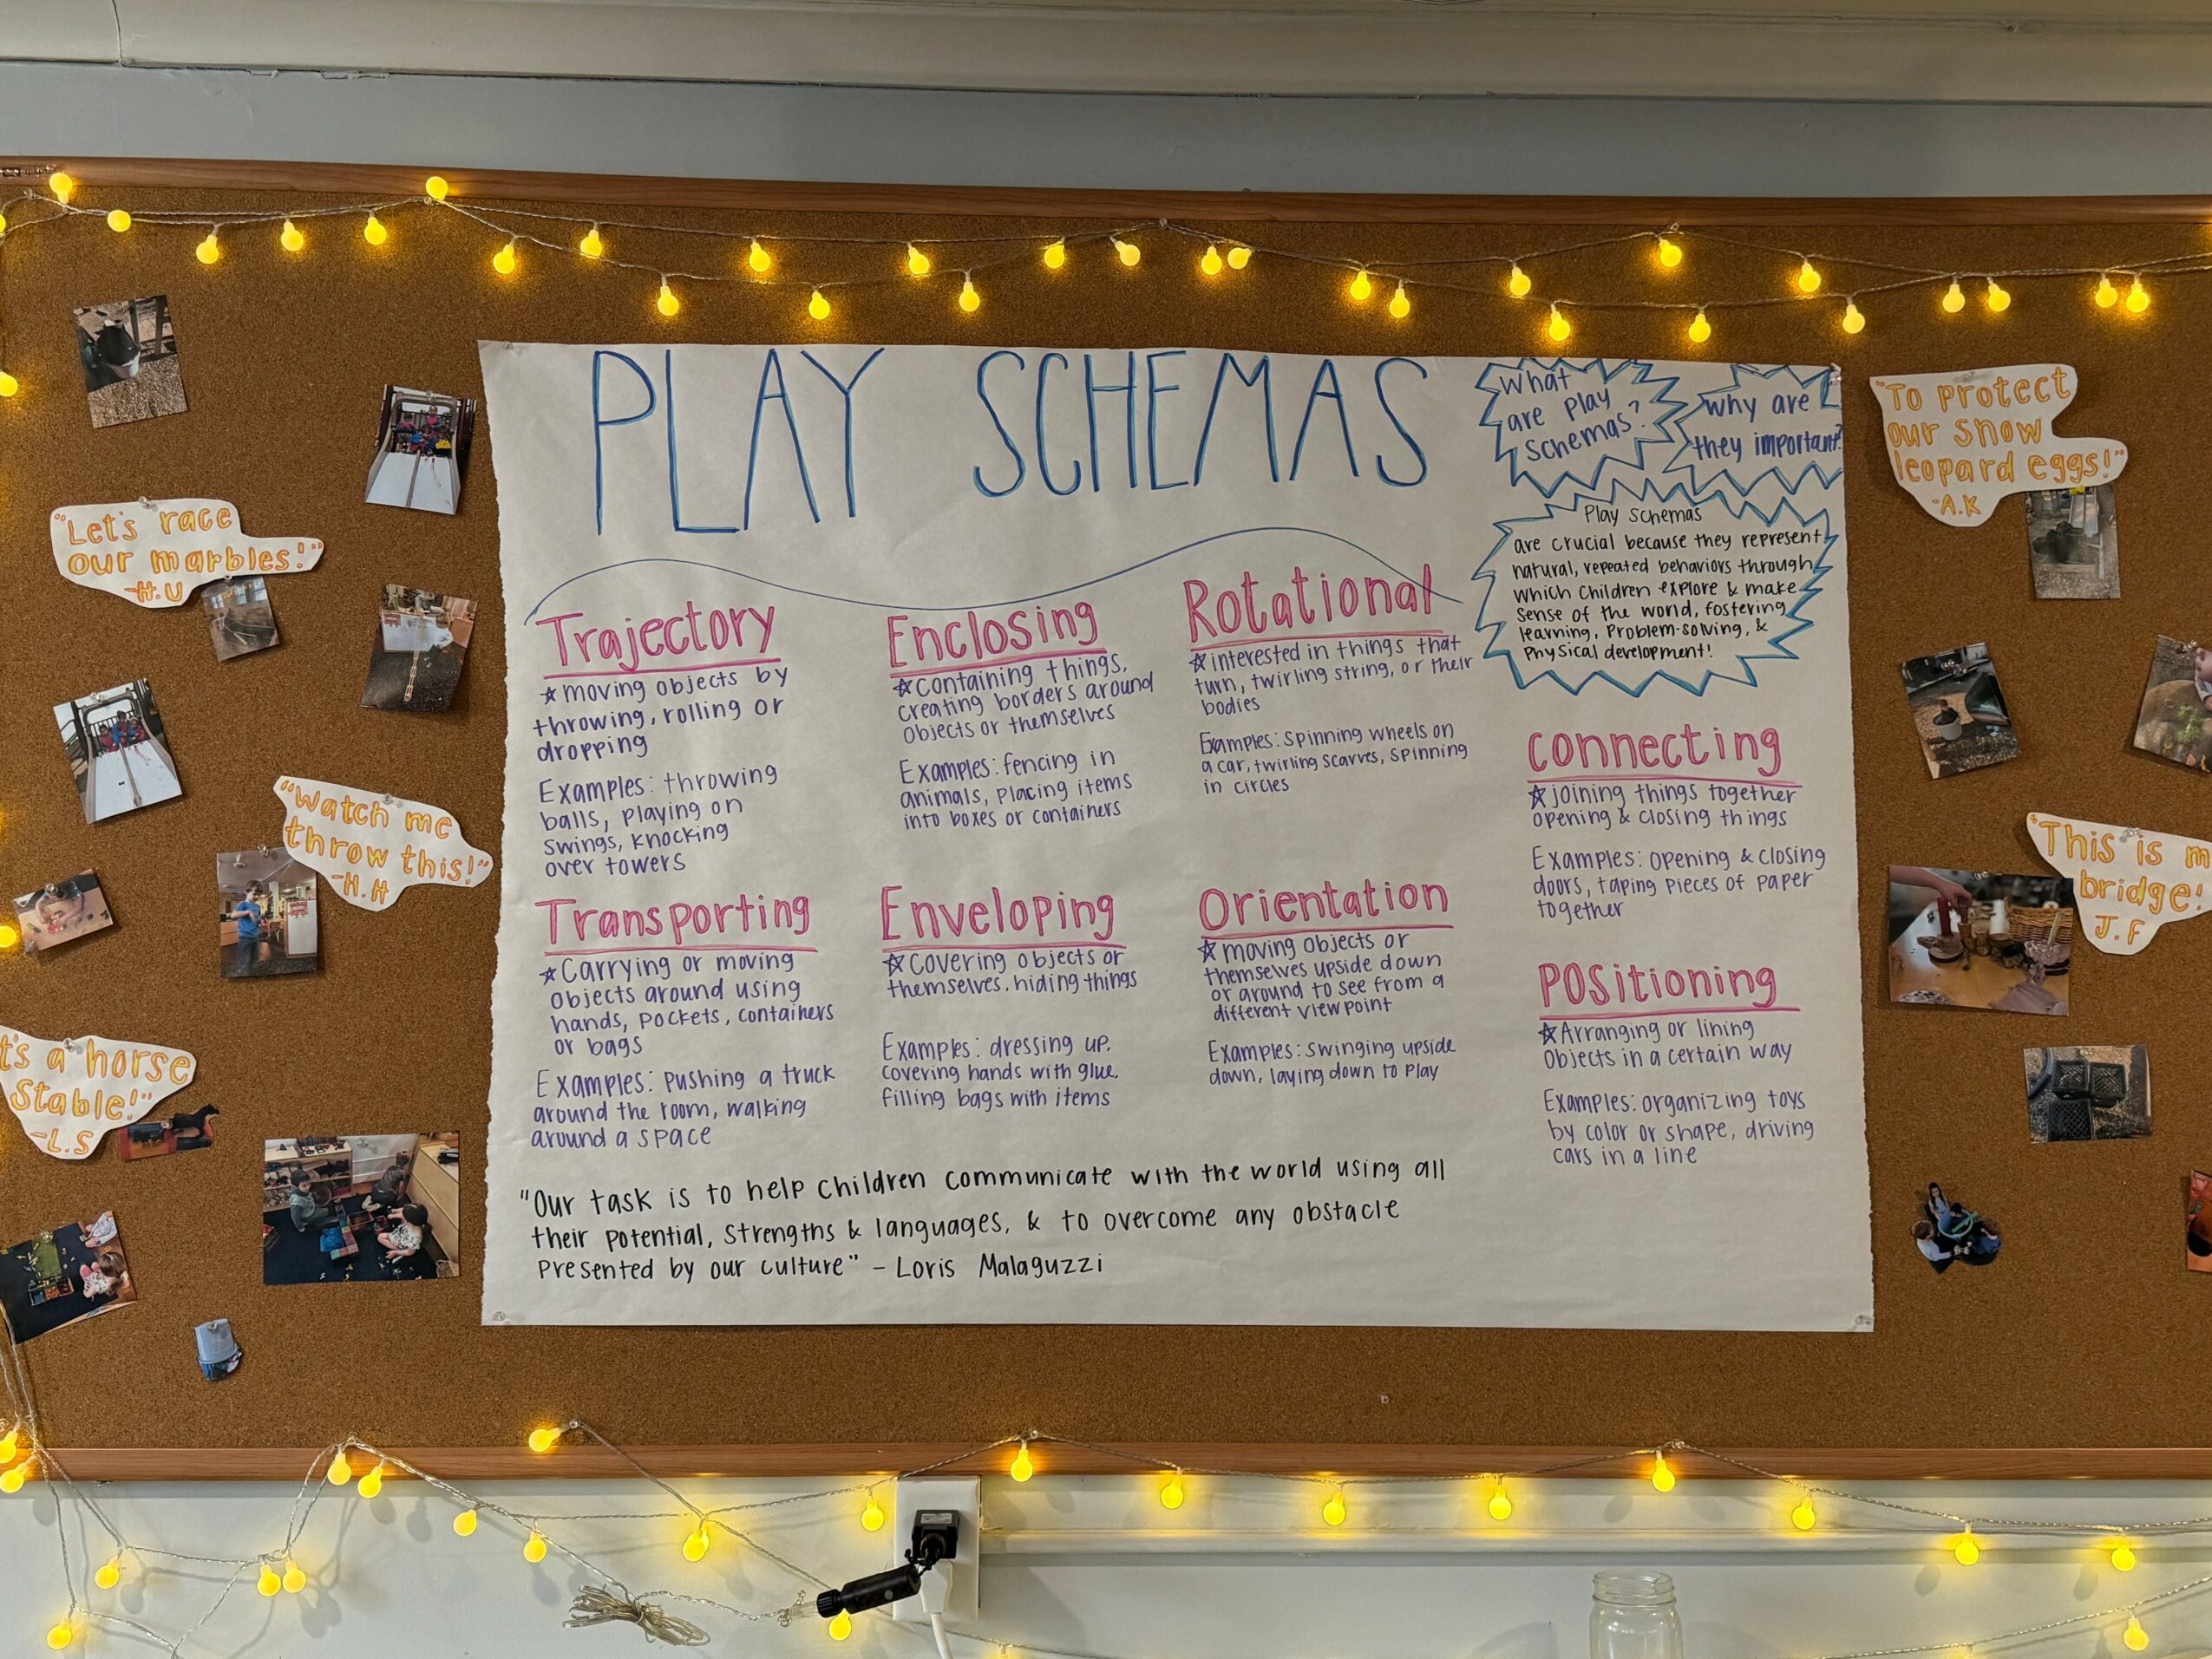 PLAY SCHEMAS
What
are play
schemas?
why are
they important?
Play schemas
are crucial because they represent
natural, repeated behaviors through
which children explore & make
sense of the world, fostering
learning, problem-solving, &
physical development!
Trajectory
☆ moving objects by
throwing, rolling or
dropping
Examples: throwing
balls, playing on
swings, knocking
over towers
Enclosing
☆ containing things,
creating borders around
objects or themselves
Examples: fencing in
animals, placing items
into boxes or containers
Rotational
☆ interested in things that
turn, twirling string, or their
bodies
Examples: spinning wheels on
a car, twirling scarves, spinning
in circles
connecting
☆ joining things together
opening & closing things
Examples: opening & closing
doors, taping pieces of paper
together
Transporting
☆ Carrying or moving
objects around using
hands, pockets, containers
or bags
Examples: pushing a truck
around the room, walking
around a space
Enveloping
☆ covering objects or
themselves, hiding things
Examples: dressing up,
covering hands with glue,
filling bags with items
Orientation
☆ moving objects or
themselves upside down
or around to see from a
different viewpoint
Examples: swinging upside
down, laying down to play
Positioning
☆ Arranging or lining
objects in a certain way
Examples: organizing toys
by color or shape, driving
cars in a line
"Our task is to help children communicate with the world using all
their potential, strengths & languages, & to overcome any obstacle
presented by our culture" - Loris Malaguzzi
"Let's race
our marbles!"
-H.U
"Watch me
throw this!"
-H.H
t's a horse
stable!"
-L.S
"To protect
our snow
leopard eggs!"
-A.K
"This is m
bridge!
J.F